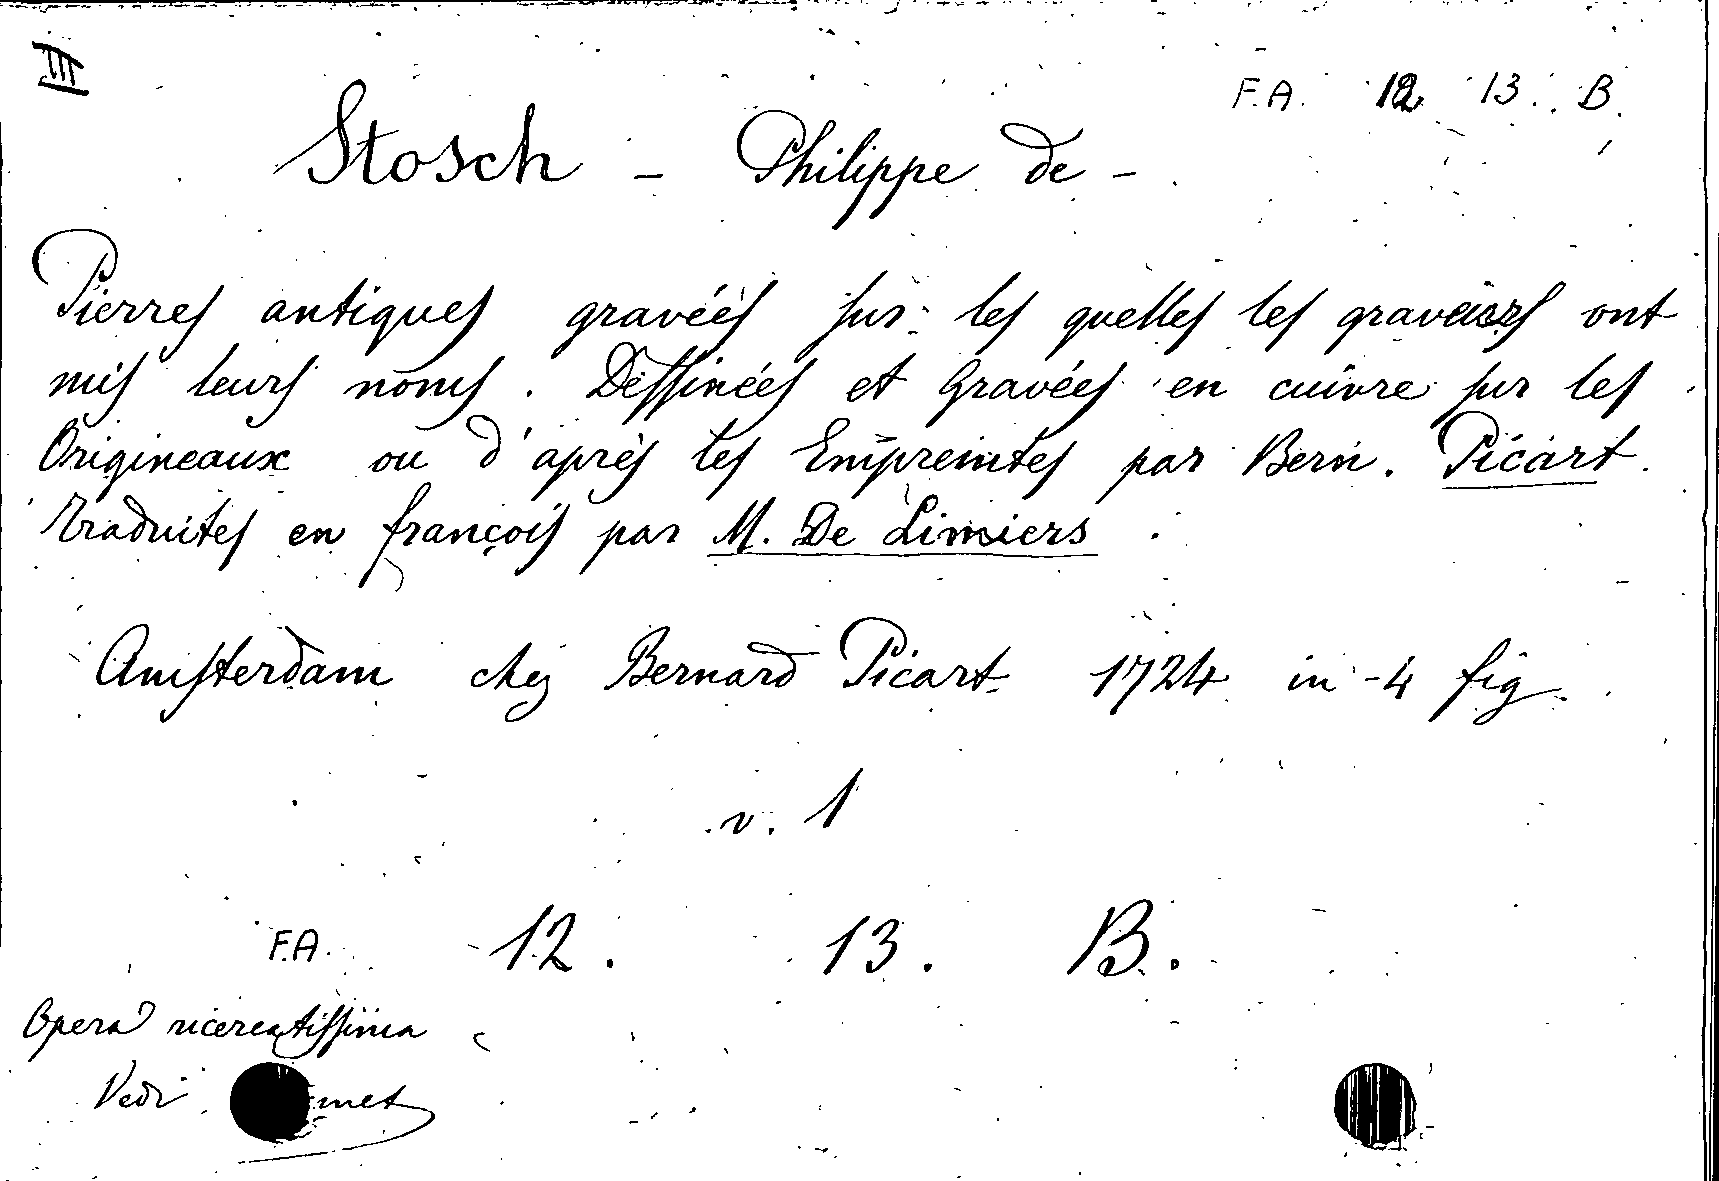 III
F.A. 12 13. B.
Stosch - Philippe de -
Pierres antiques gravées sur les quelles les graveurs ont
mis leurs noms. Dessinées et Gravées en cuivre sur les
Origineaux ou d'après les Empreintes par Bern. Picart.
traduites en françois par M. De Limiers.
Amsterdam chez Bernard Picart 1724 in-4 fig.
v. 1
F.A. 12. 13. B.
Opera ricercatissima
Vedi